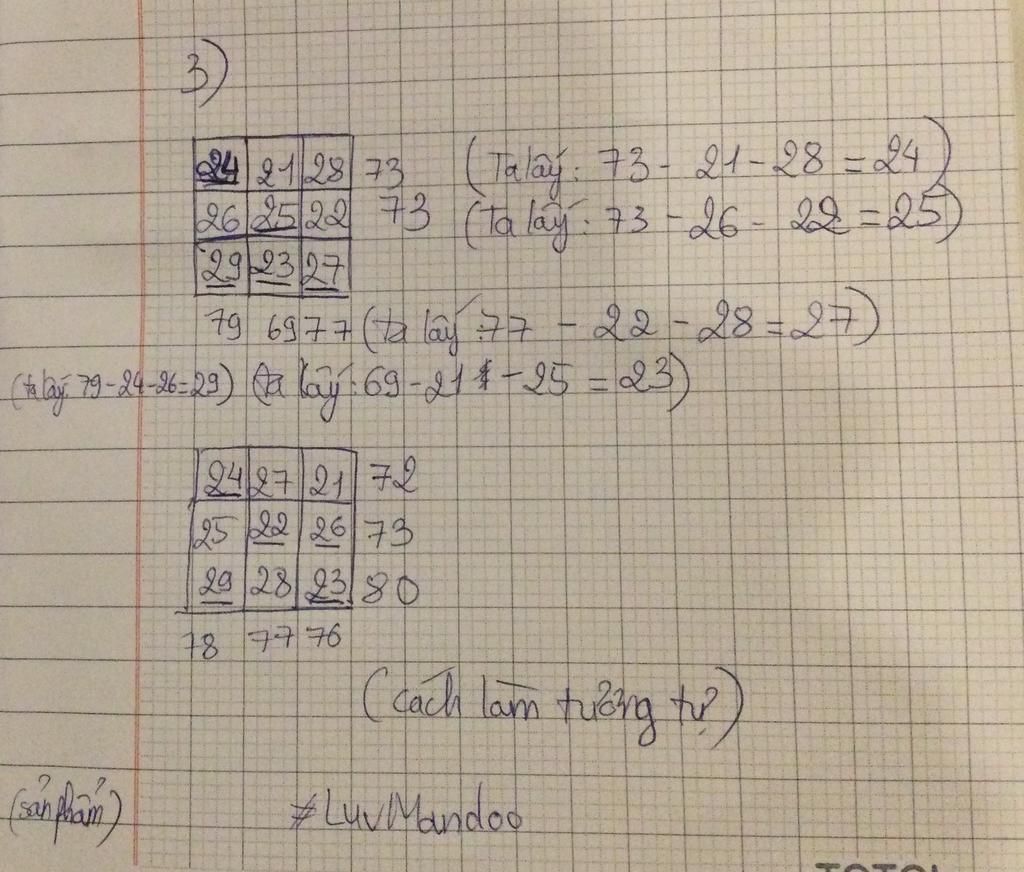 3)
24 21 28 73 (Ta lấy: 73 - 21 - 28 = 24)
26 25 22 73 (Ta lấy: 73 - 26 - 22 = 25)
29 23 27
79 69 77 (ta lấy: 77 - 22 - 28 = 27)
(ta lấy: 79 - 24 - 26 = 29) (ta lấy: 69 - 21 - 25 = 23)
24 27 21 72
25 22 26 73
29 28 23 80
78 77 76
(cách làm tương tự)
(sản phẩm) #LuvMandoo